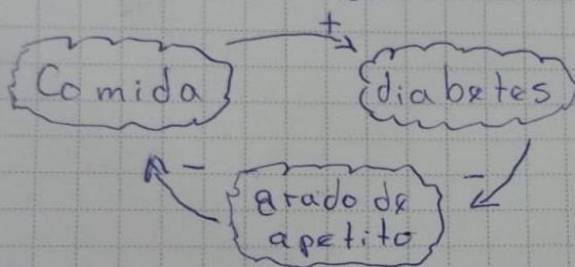 +
Comida
diabetes
-
-
grado de
apetito